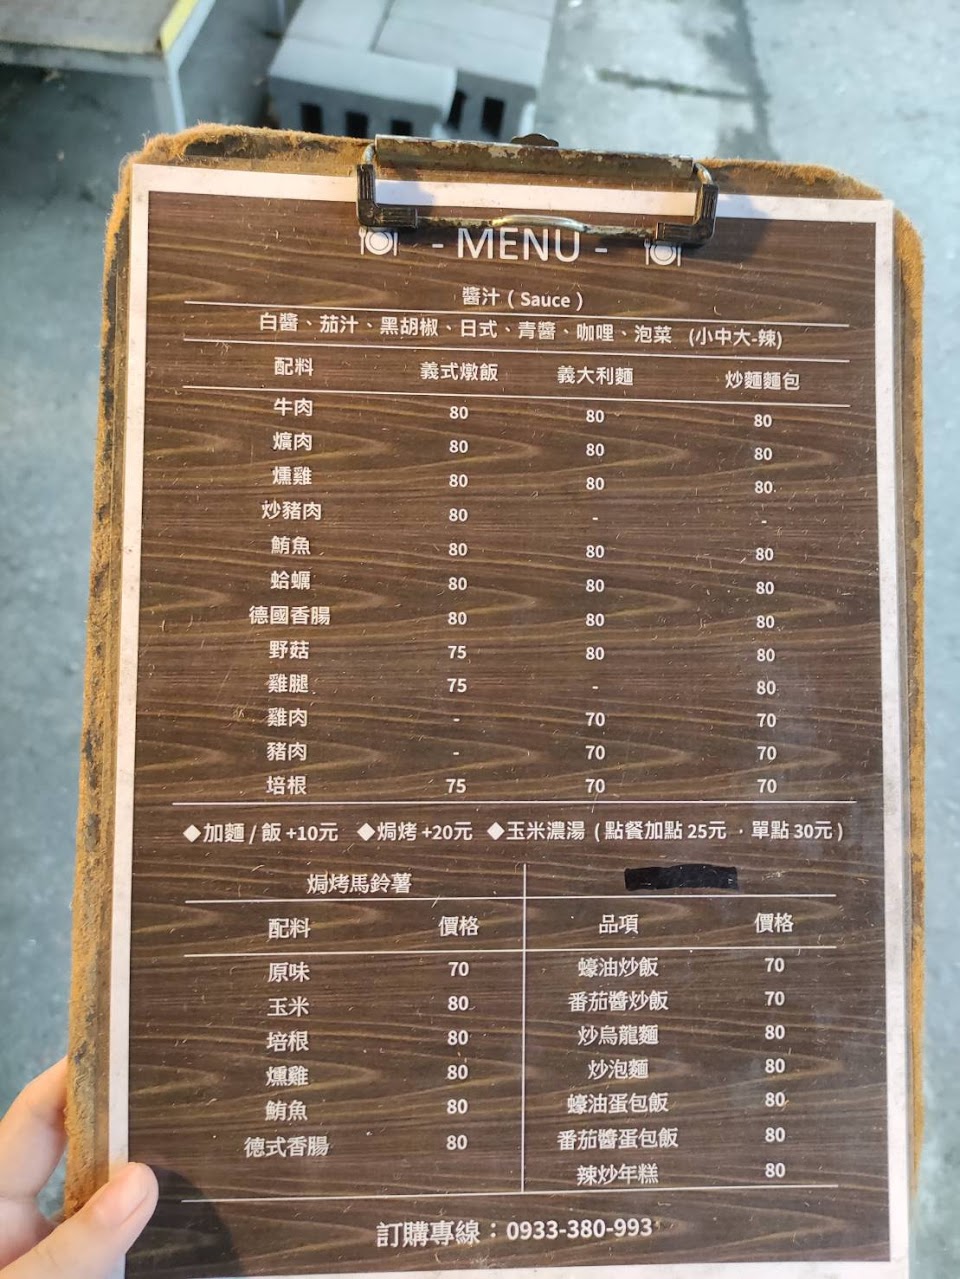 - MENU -
醬汁 ( Sauce )
白醬、茄汁、黑胡椒、日式、青醬、咖哩、泡菜 (小中大-辣)
配料 義式燉飯 義大利麵 炒麵麵包
牛肉 80 80 80
爌肉 80 80 80
燻雞 80 80 80
炒豬肉 80 - -
鮪魚 80 80 80
蛤蠣 80 80 80
德國香腸 80 80 80
野菇 75 80 80
雞腿 75 - 80
雞肉 - 70 70
豬肉 - 70 70
培根 75 70 70
◆加麵 / 飯 +10元 ◆焗烤 +20元 ◆玉米濃湯 ( 點餐加點 25元 ，單點 30元 )
焗烤馬鈴薯
配料 價格
原味 70
玉米 80
培根 80
燻雞 80
鮪魚 80
德式香腸 80
品項 價格
蠔油炒飯 70
番茄醬炒飯 70
炒烏龍麵 80
炒泡麵 80
蠔油蛋包飯 80
番茄醬蛋包飯 80
辣炒年糕 80
訂購專線：0933-380-993